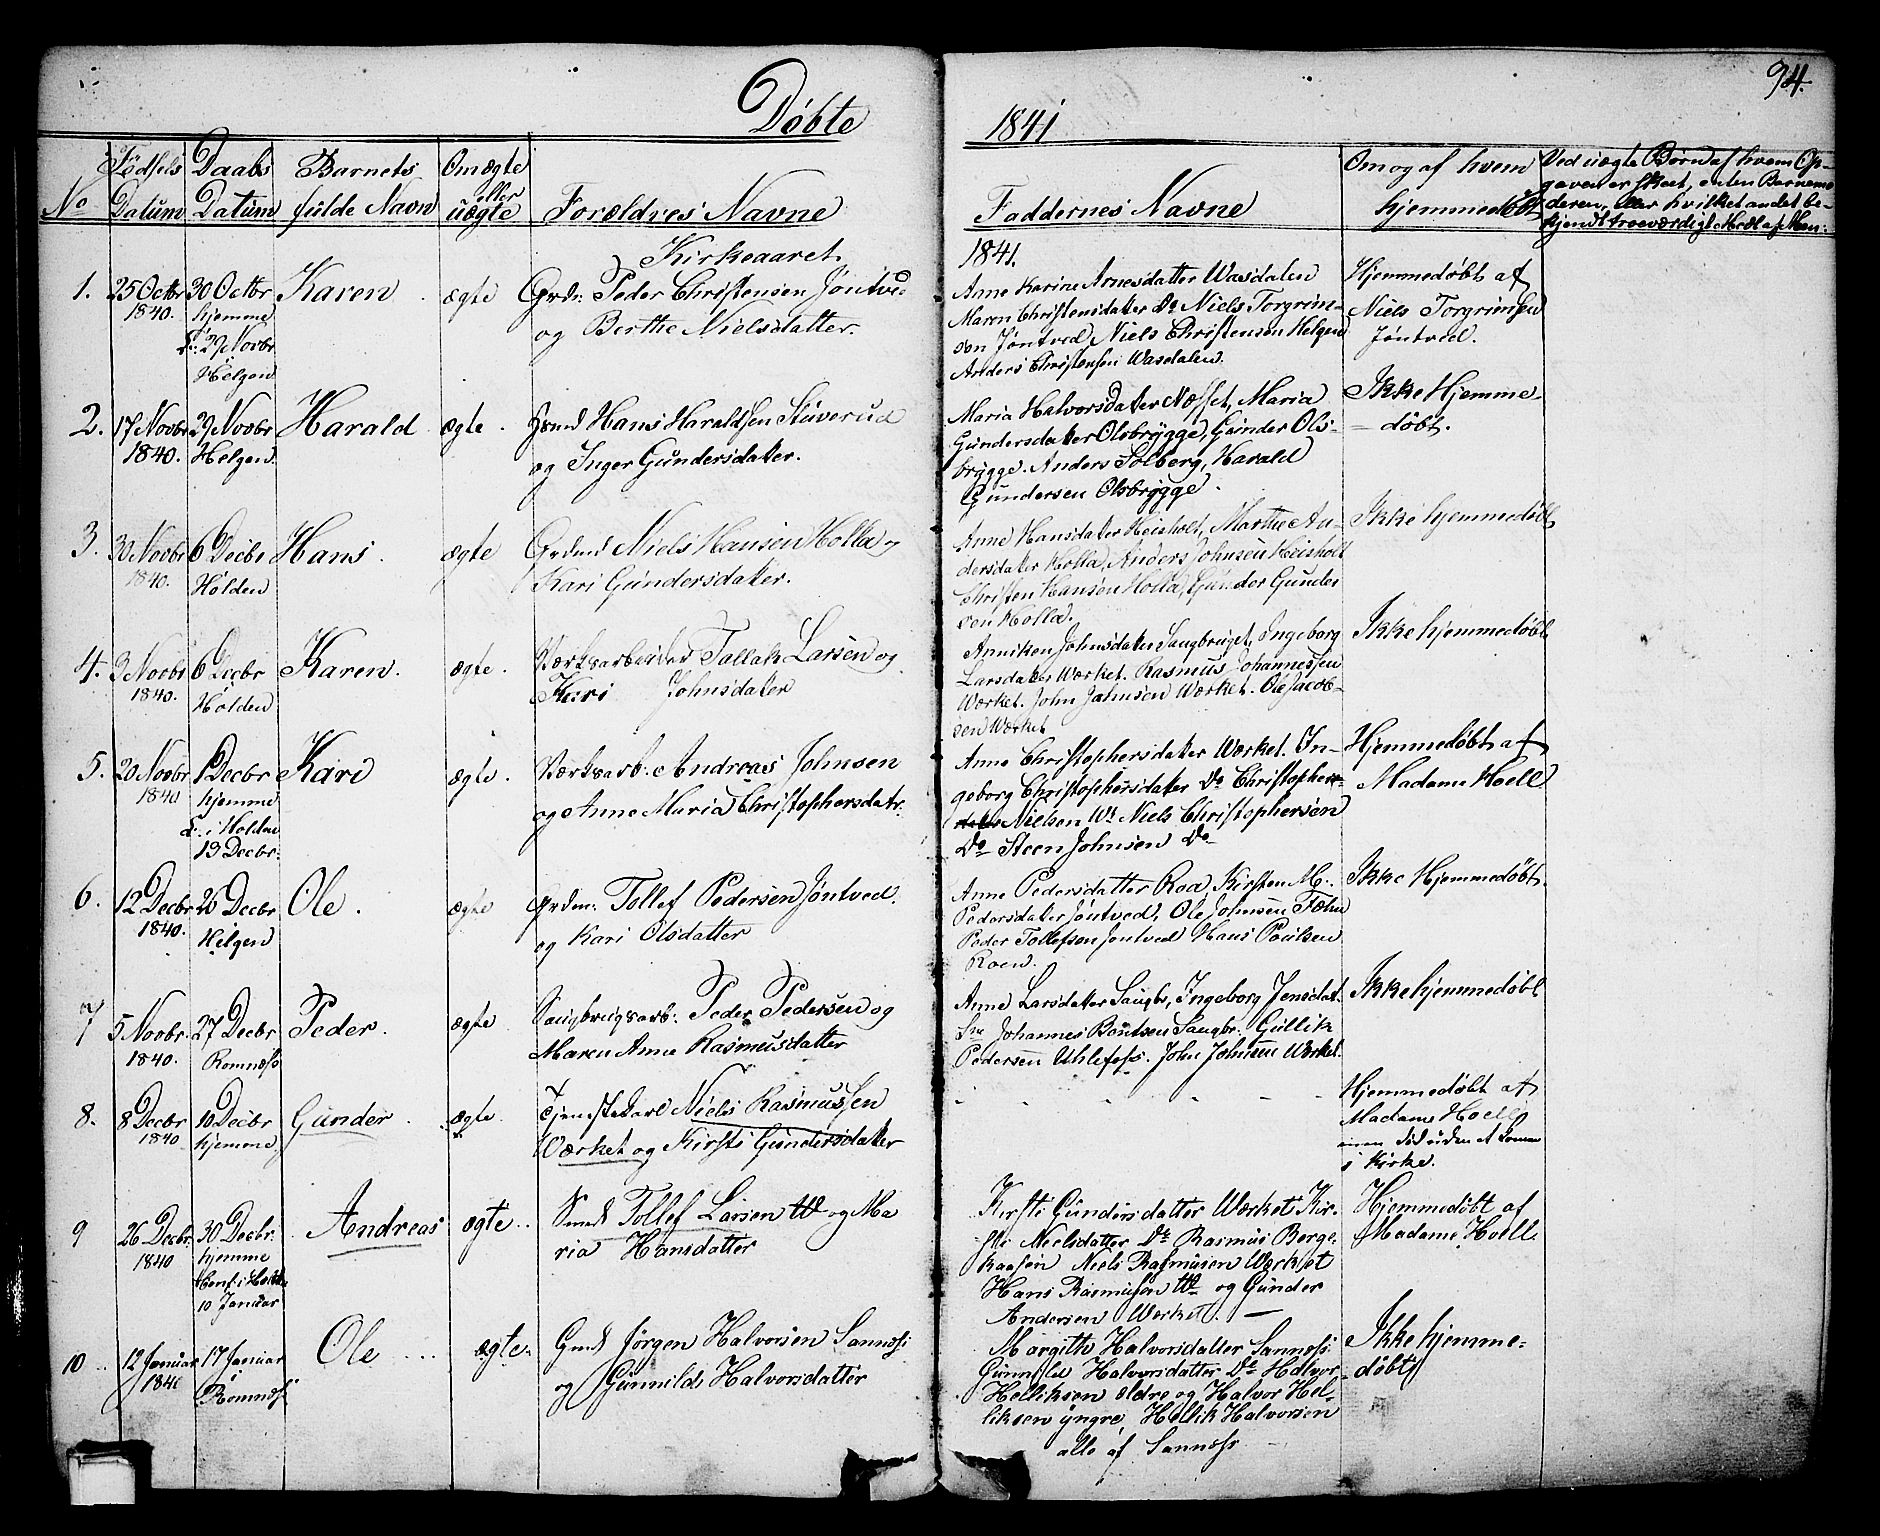 94.
Døbte
1841
No
Fødsels Datum
Daabs Datum
Barnets fulde Navn
Om ægte eller uægte
Forældres Navne
Faddernes Navne
Om og af hvem hjemmedøbt
Ved uægte Børn af hvem Op-
gaven er skeet, enten Barnemo-
deren, eller hvilket andet be-
kjendt troeværdigt
Kirkeaaret
1841.
1.
25 Octbr
1840.
30 Octbr
hjemme
29 Novbr
Helgen
Karen
ægte
Grdm: Peder Christensen Jøntve-
og Berthe Nielsdatter.
Anne Karine Arnesdatter Wasdalen
Maren Christensdater Do Niels Torgrim-
sen Jøntved, Niels Christensen Helgen
Anders Christensen Wasdalen.
Hjemmedøbt af
Niels Torgrimsen
Jøntved.
2.
17 Novbr
1840.
29 Novbr
Helgen
Harald
ægte.
Hans Haraldsen Stuverud
og Inger Gundersdater.
Maria Halvorsdater Næsset, Maria
Gundersdater Olsbrygge, Gunder Ols-
brygge. Anders Solberg, Harald
Gundersen Olsbrygge.
Ikke Hjemme-
døbt.
3.
30 Novbr
1840.
6 Decbr
Holden
Hans.
ægte
Grdmd Niels Hansen Holla og
Kari Gundersdater.
Anne Hansdater Heisholt, Marthe An-
dersdater Holla, Anders Johnsen Heisholt
Christen Hansen Holla, Gunder Gunder
sen Holla.
Ikke hjemmedøbt
4.
3 Novbr
1840.
6 Decbr
Holden
Karen.
ægte.
Værksarbeider Tollak Larsen og
Kari Johnsdater
Anniken Johnsdater Saugbruget, Ingeborg
Larsdater Værket. Rasmus Johannessen
Værket. John Johnsen Værket. Ole Jacob-
sen Værket
Ikke hjemmedøbt
5.
20 Novbr
1840
1 Decbr
hjemme
i Holden
13 Decbr:
Kari
ægte.
Værksarb: Andreas Johnsen
og Anne Maria Christophersdatr.
Anne Christophersdater Værket. In-
geborg Christophersdater Do Christopher
Nielsen Wt Niels Christophersen
Do Steen Johnsen Do
Hjemmedøbt af
Madame Hoell
6.
12 Decbr
1840.
26 Decbr
Helgen
Ole.
ægte
Grdm: Tollef Pedersen Jøntved.
og Kari Olsdatter
Anne Pedersdatter Roa, Kirsten M:
Pedersdater Jøntved, Ole Johnsen Fæhn
Peder Tollefsen Jøntved Hans Poulsen
Roen.
Ikke Hjemmedøbt.
7
5 Novbr.
1840.
27 Decbr
Romnæss
Peder.
ægte.
Saugbrugsarb: Peder Pedersen og
Maren Anne Rasmusdatter
Anne Larsdater Saugbr, Ingeborg Jensdat.
Johannes Saugbr. Gullik
Pedersen Uhlefoss. John Johnsen Værket.
Ikke hjemmedøbt
8.
8 Decbr
1840
10 Decbr
hjemme.
Gunder
ægte.
Tjenestekarl Niels Rasmussen
Værket og Kirsti Gundersdatter
Hjemmedøbt af
Madame Hoell
men død uden at komme
i Kirke.
9
26 Decbr.
1840
30 Decbr.
hjemme
10 Januar
Andreas
ægte..
Smed Tollef Larsen W og Ma
ria Hansdatter
Kirsti Gundersdatter Værket Kir-
sti Nielsdatter Do Rasmus Berge-
Niels Rasmusen Værket
Hans Rasmusen Wt og Gunder
Andersen Værket.
Hjemmedøbt af
Madame Hoell.
10..
12 Januar
1841
17 Januar
Romnæss
Ole ....
ægte..
Gmd Jørgen Halvorsen Sannæss
og Gunnild Halvorsdatter
Margith Halvorsdatter Sannæss
Gunnild Halvorsdatter Do Halvor
Helliksen ældre og Halvor Hel-
liksen yngre, Hellik Halvorsen
alle af Sannæss
Ikke hjemme-
døbt